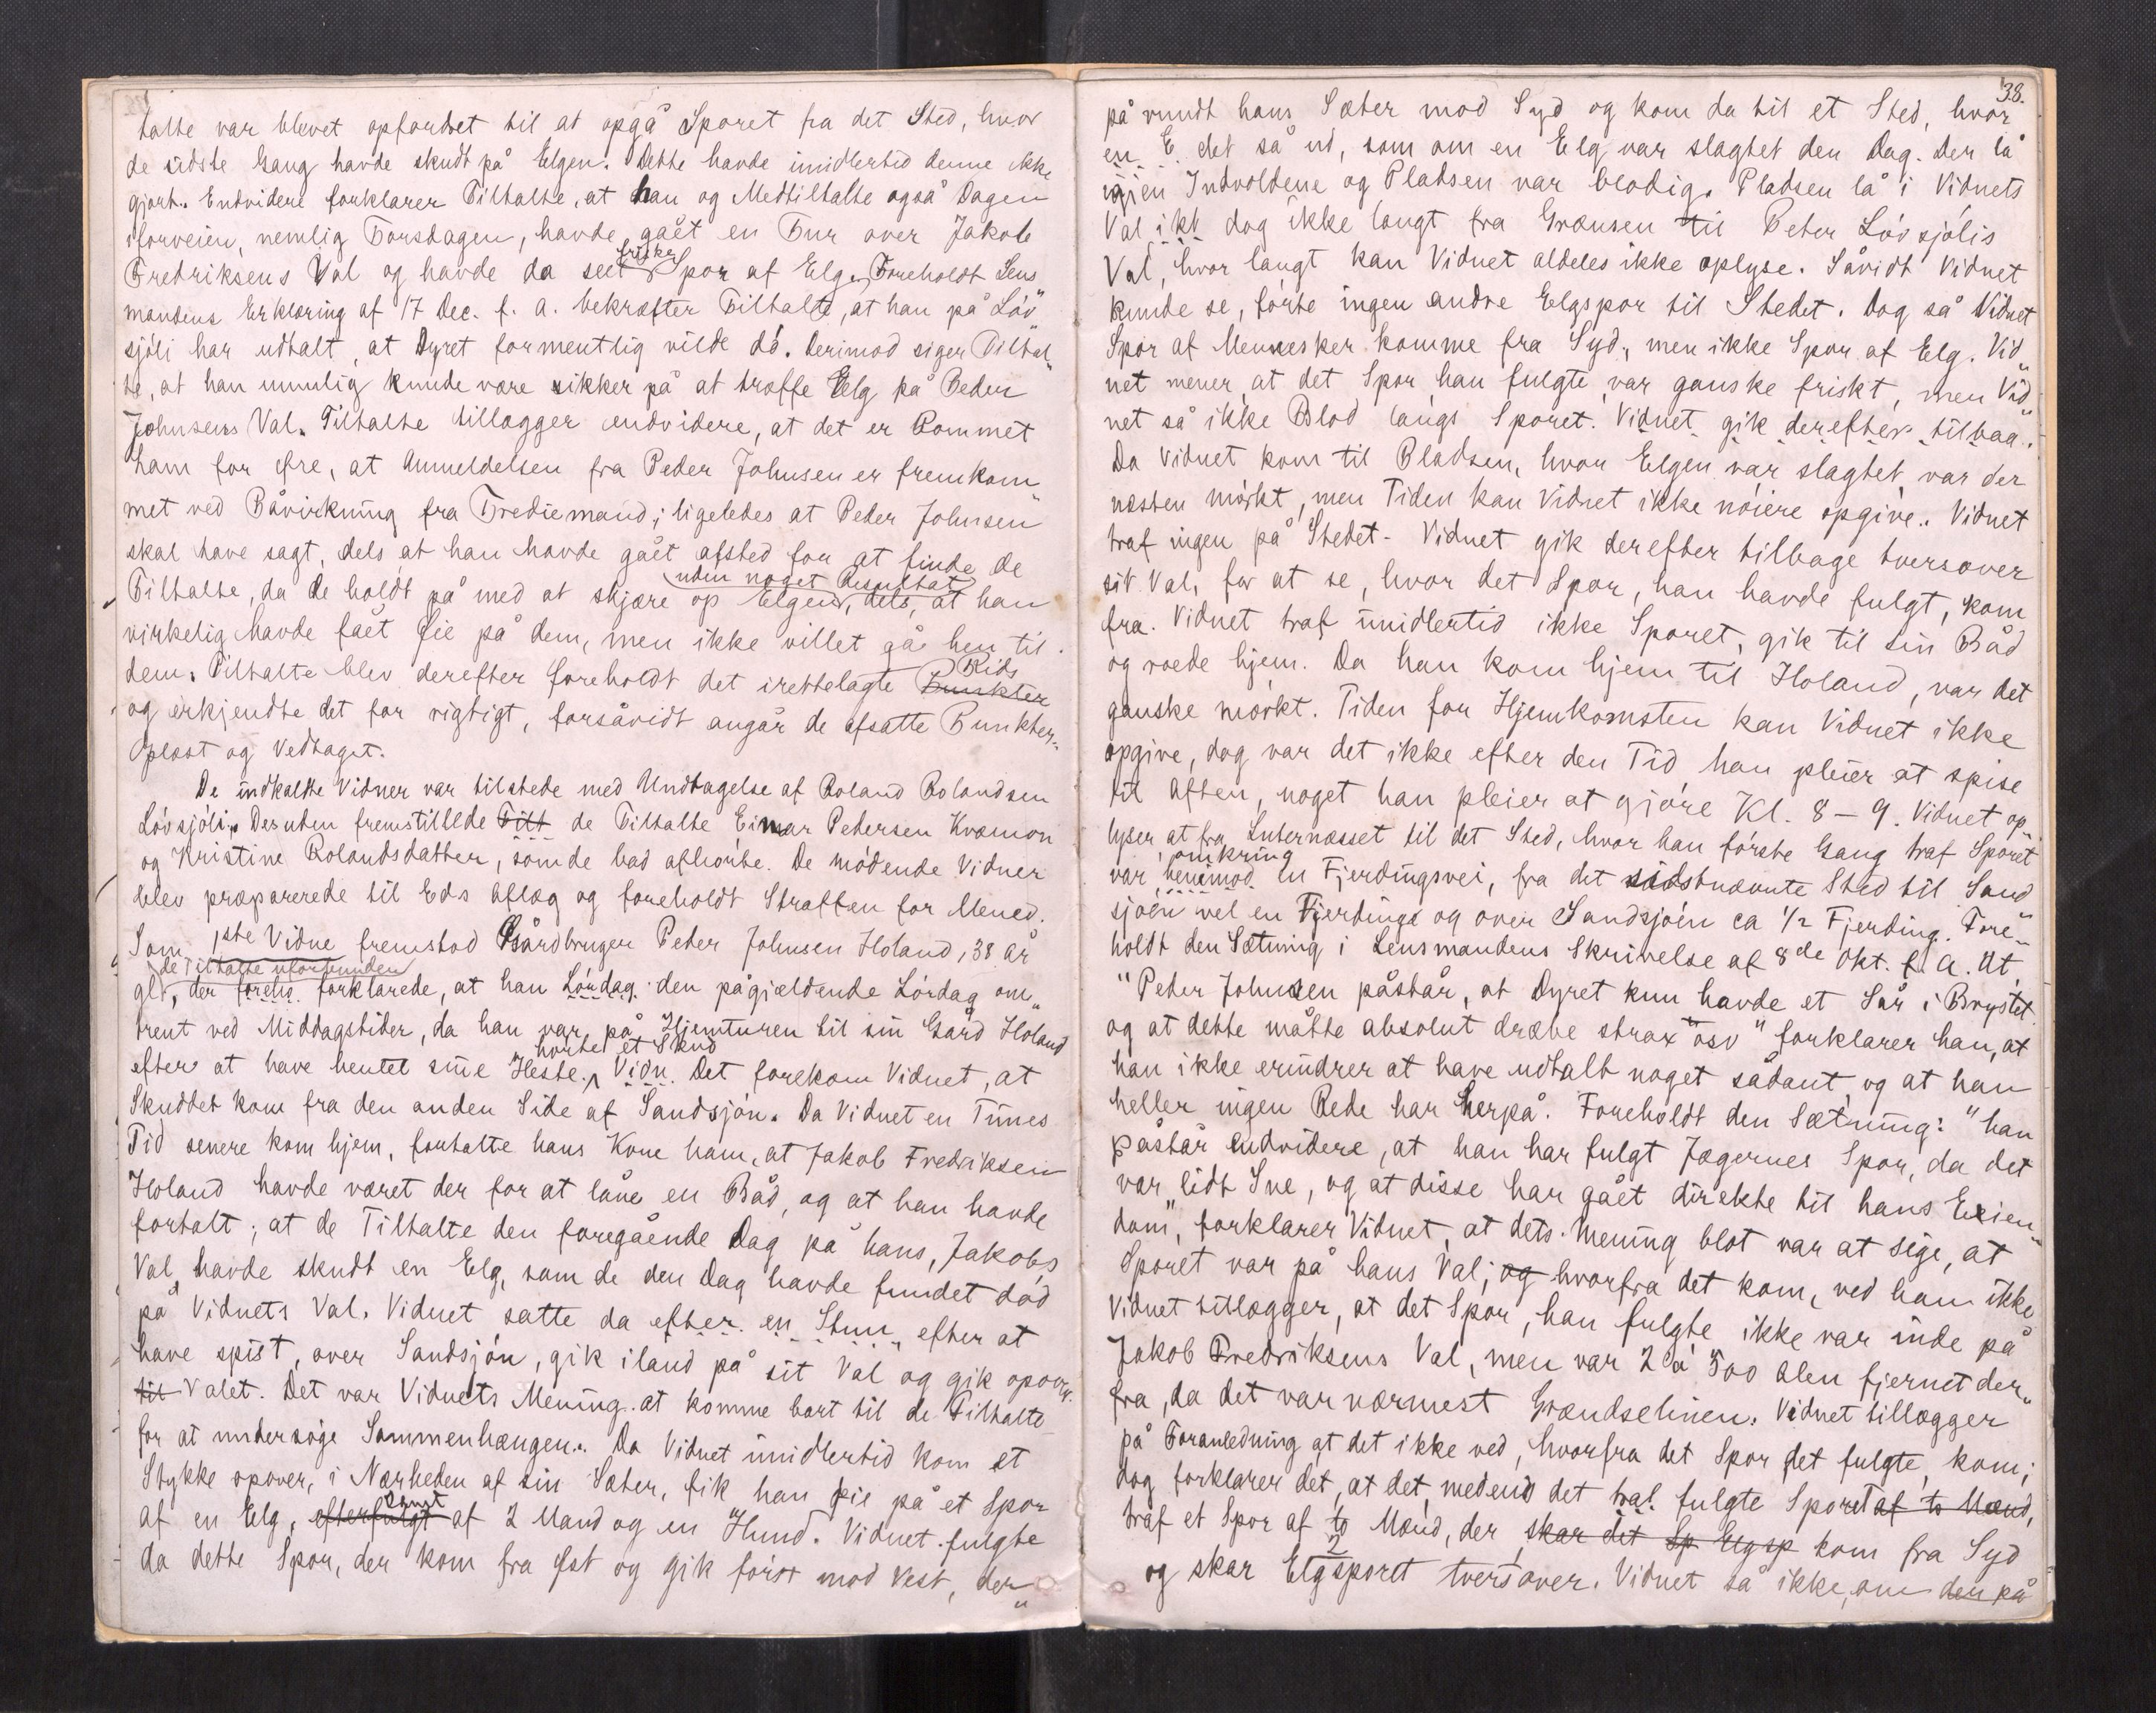 talte var blevet opfordret til at opgå Sporet fra det Sted, hvor
de sidste Gang havde skudt på Elgen. Dette havde imidlertid denne ikke
gjort. Endvidere forklarer Tiltalte, at han og Medtiltalte også Dagen
iforveien, nemlig Torsdagen, havde gået en Tur over Jakob
Fredriksens Val og havde da seet friske Spor af Elg. Foreholdt Lens„
mandens Erklæring af 17 Dec. f. a. bekræfter Tiltalte, at han på Löv„
sjöli har udtalt, at Dyret formentlig vilde dö. Derimod siger Tiltal„
te, at han umulig kunde være sikker på at træffe Elg på Peder
Johnsens Val. Tiltalte tillægger endvidere, at det er kommet
ham for öre, at Anmeldelsen fra Peder Johnsen er fremkom„
met ved Påvirkning fra Trediemand; ligeledes at Peder Johnsen
skal have sagt, dels at han havde gået afsted for at finde de
Tiltalte, da de holdt på med at skjære op Elgen, uden noget Resultat, dels, at han
virkelig havde fået Øie på dem, men ikke villet gå hen til
dem. Tiltalte blev derefter foreholdt det irettelagte Punkter Rids
og erkjendte det for rigtigt, forsåvidt angår de afsatte Punkter.
Oplæst og Vedtaget.
De indkaldte Vidner var tilstede med Undtagelse af Roland Rolandsen
Lövsjöli. Desuden fremstillede Tilt de Tiltalte Einar Petersen Kvæmon
og Kristine Rolandsdatter, som de bad afhörte. De mödende Vidner
blev præparerede til Eds Aflæg og foreholdt Straffen for Mened.
Som 1ste Vidne fremstod Gårdbruger Peder Johnsen Holand, 38 år
gl., de Tiltalte uforbunden, der foreho. forklarede, at han Lördag den pågjældende Lördag om„
trent ved Middagstider, da han var på Hjemturen til sin Gård Holand
efter at have hentet sine Heste. hörte et Skud Vidn. Det forekom Vidnet, at
Skuddet kom fra den anden Side af Sandsjön. Da Vidnet en Times
Tid senere kom hjem, fortalte hans Kone ham, at Jakob Fredriksen
Holand havde været der for at låne en Båd, og at han havde
fortalt, at de Tiltalte den foregående Dag på hans, Jakobs
Val, havde skudt en Elg, som de den Dag havde fundet död
på Vidnets Val. Vidnet satte da efter en Stun„ efter at
have spist, over Sandsjön, gik iland på sit Val og gik opover
til Valet. Det var Vidnets Mening at komme bort til de Tiltalte
for at undersöge Sammenhængen. Da Vidnet imidlertid kom et
Stykke opover, i Nærheden af sin Sæter, fik han Øie på et Spor
af en Elg, efterfulgt samt af 2 Mand og en Hund. Vidnet fulgte
da dette Spor, der kom fra Øst og gik först mod Vest, der„
38.
på rundt hans Sæter mod Syd og kom da til et Sted, hvor
en E. det så ud, som om en Elg var slagtet den Dag. Der lå
igjen Indvoldene og Pladsen var blodig. Pladsen lå i Vidnets
Val ikk dog ikke langt fra Grænsen til Peter Lövsjölis
Val, hvor langt kan Vidnet aldeles ikke oplyse. Såvidt Vidnet
kunde se, förte ingen andre Elgspor til Stedet. Dog så Vidnet
Spor af Mennesker komme fra Syd, men ikke Spor af Elg. Vid„
net mener, at det Spor, han fulgte, var ganske friskt, men Vid„
net så ikke Blod langs Sporet. Vidnet gik derefter tilbag.
Da Vidnet kom til Pladsen, hvor Elgen var slagtet, var der
næsten mörkt, men Tiden kan Vidnet ikke nöiere opgive. Vidnet
traf ingen på Stedet. Vidnet gik derefter tilbage tversover
sit Val, for at se, hvor det Spor, han havde fulgt, kom
fra. Vidnet traf imidlertid ikke Sporet, gik til sin Båd
og roede hjem. Da han kom hjem til Holand, var det
ganske mörkt. Tiden for Hjemkomsten kan Vidnet ikke
opgive, dog var det ikke efter den Tid, han pleier at spise
til Aften, noget han pleier at gjöre Kl. 8 – 9. Vidnet op„
lyser at fra Luternæsset til det Sted, hvor han förste Gang traf Sporet
var henimod omkring en Fjerdingsvei, fra det sidstnævnte Sted til Sand„
sjoen vel en Fjerdings og over Sandsjoen ca 1/2 Fjerding. Fore„
holdt den Sætning i Lensmandens Skrivelse af 8de Okt. f. A. At
"Peder Johnsen påstår, at Dyret kun havde et Sår i Brystet
og at dette måtte absolut dræbe strax osv" forklarer han, at
han ikke erindrer at have udtalt noget sådant, og at han
heller ingen Rede har herpå. Foreholdt den Sætning: "han
påstår endvidere, at han har fulgt Jægernes Spor, da det
var lidt Sne, og at disse har gået direkte til hans Eien„
dom", forklarer Vidnet, at dets Mening blot var at sige, at
Sporet var på hans Val; og hvorfra det kom, ved han ikke
Vidnet tillægger, at det Spor, han fulgte ikke var inde på
Jakob Fredriksens Val, men var 2 á 300 Alen fjernet der„
fra, da det var nærmest Grændselinien. Vidnet tillægger
på Foranledning at det ikke ved, hvorfra det Spor det fulgte, kom;
dog forklarer det, at det, medens det traf fulgte Sporet af to Mænd,
traf et Spor af to 2 Mænd, der skar det Sp Elgsp kom fra Syd
og skar Elgsporet tversover. Vidnet så ikke, om den på